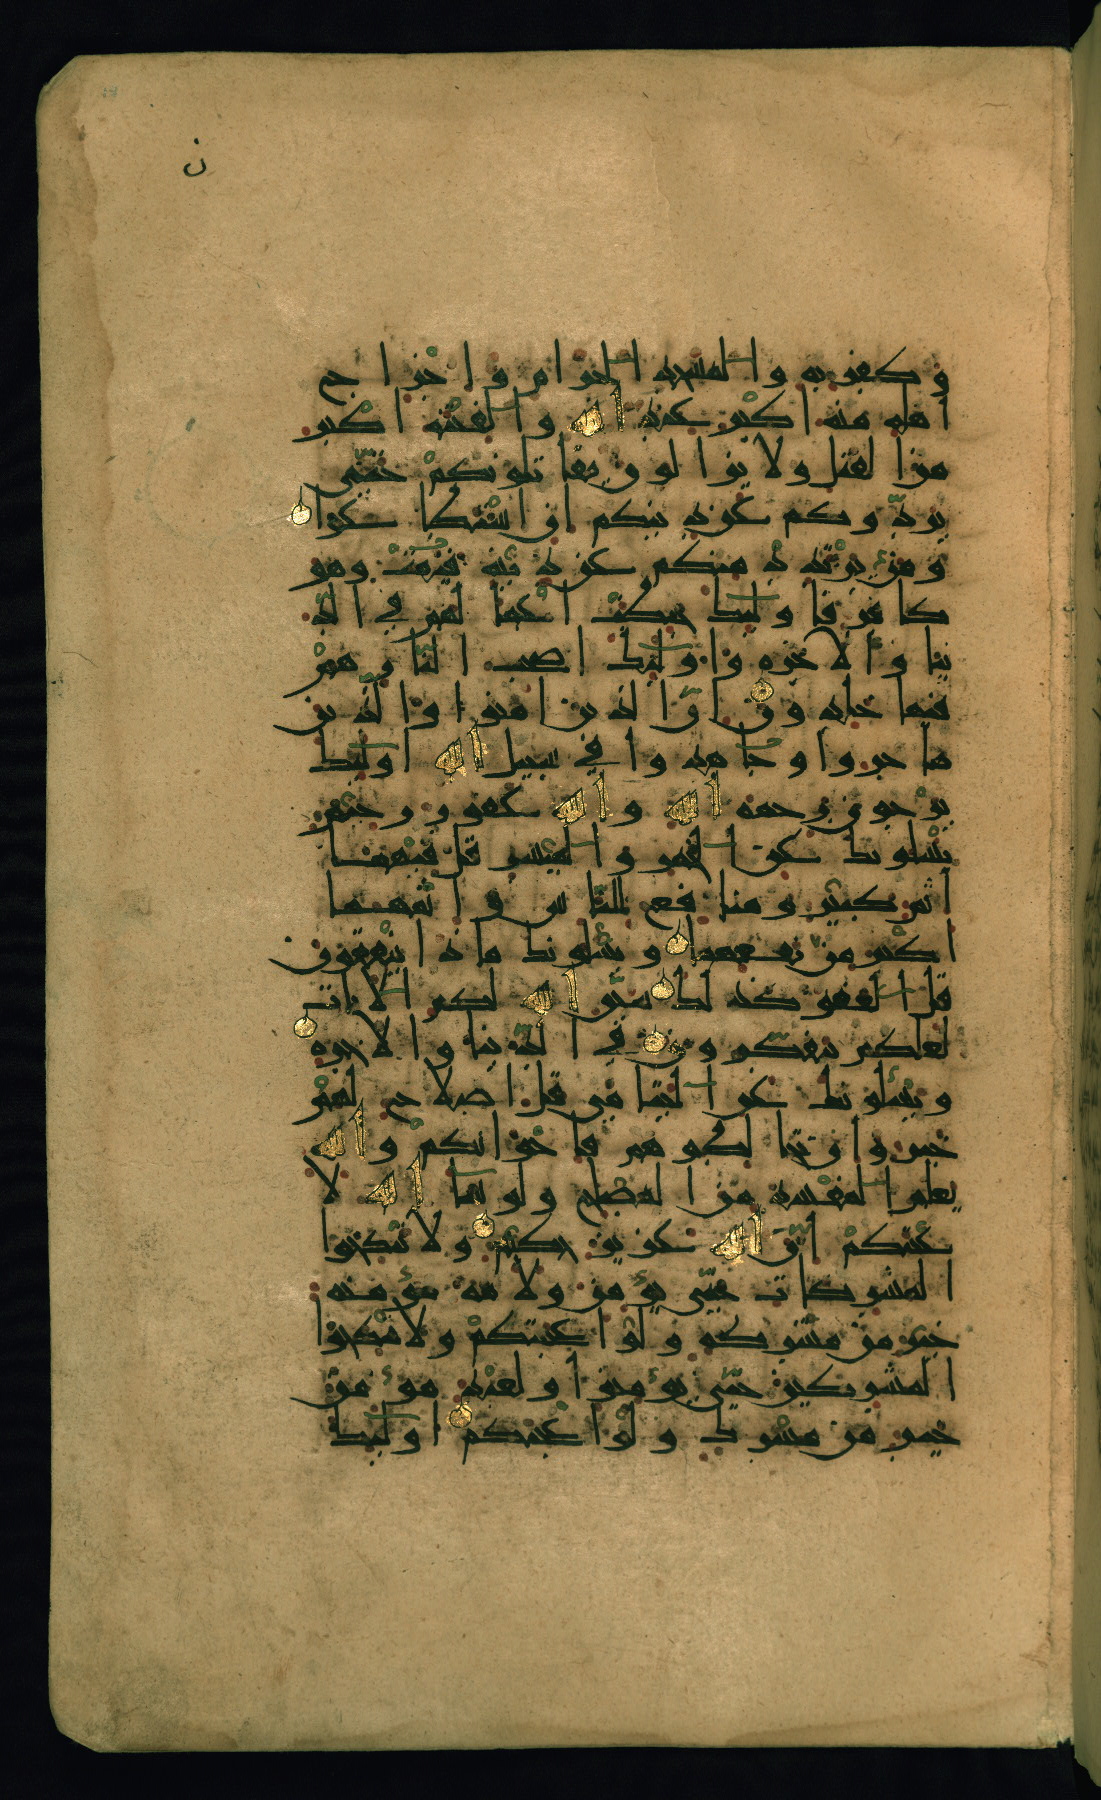 ن
وكفر به والمسجد الحرام واخراج
اهله منه اكبر عند الله والفتنه اكبر
من القتل ولا يزالون يقاتلونكم حتّى
يردّوكم عن دينكم ان استطاعوا
ومن يرتدد منكم عن دينه فيمت وهو
كافر فاولئك حبطت اعمالهم في الد
نيا والاخره واولئك اصحب النّار هم
فيها خلدون انّ الذين امنوا والّذين
هاجروا وجاهدوا في سبيل الله اولئك
يرجون رحمه الله والله غفور رحيم
يسلونك عن الخمر والميسر قل فيهما
اثم كبير ومنافع للنّاس واثمهما
اكبر من نفعهما ويسلونك ماذا ينفقون
قل العفو كذلك يبيّن الله لكم الايات
لعلكم تتفكّرون في الدّنيا والاخره
ويسئلونك عن اليتامى قل اصلاح لهم
خير وان تخالطوهم فاخوانكم والله
يعلم المفسد من المصلح ولو شا الله لا
عنتكم انّ الله عزيز حكيم ولا تنكحوا
المشركات حتّى يؤمن ولامه مؤمنه
خير من مشركه ولو اعجبتكم ولا تنكحوا
المشركين حتّى يؤمنوا ولعبد مؤمن
خير من مشرك ولو اعجبكم اولئك